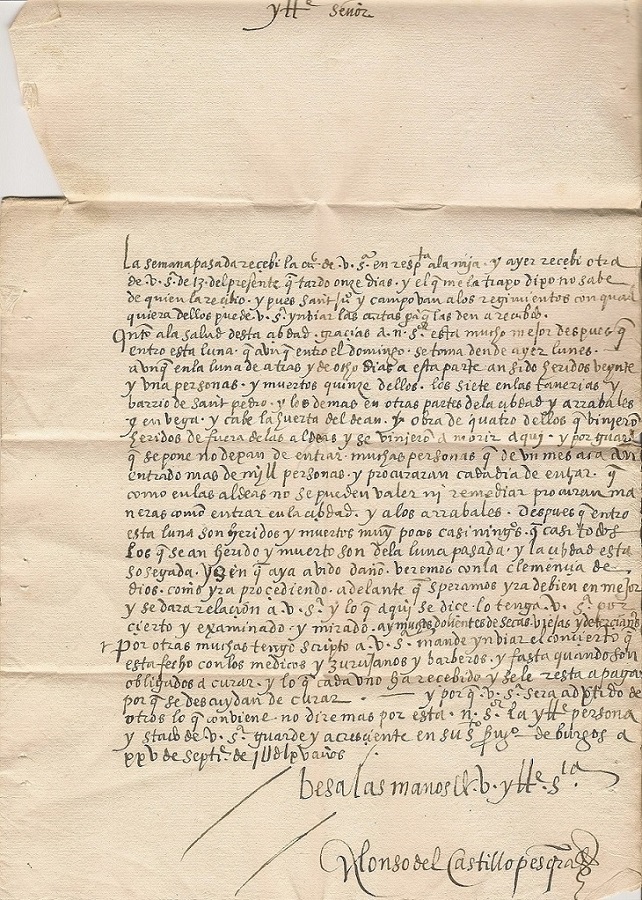 yllᵉ señor
La semana pasada recebi la cᵃ de v. sᵃ en respᵗᵃ a la mia. y ayer recebi otra
de v. sᵃ de 13 del presente q̄ tardo onze dias. y el q̄ me la traxo dixo no sabe
de quien la recibio. y pues sant juᵒ y campo van a los regimientos con qual
quiera dellos puede v. sᵃ ynbiar las cartas pa q̄ las den a recabdo.
Qntō a la salud desta cibdad. gracias a n. sᵒʳ esta mucho mejor despues q̄
entro esta luna. q̄ aunq̄ entro el domingo. se toma dende ayer lunes.
aunq̄ en la luna de atras y de ocho dias a esta parte an sido heridos veynte
y una personas. y muertos quinze dellos. los siete en las tanerias y
barrio de sant pedro. y los demas en otras partes de la cibdad y arrabales
q̄ en vega. y cabe la huerta del dean. y obra de quatro dellos q̄ viniero
heridos de fuera de las aldeas y se viniero a morir aqui. y por guarda
q̄ se pone no dexan de entrar. muchas personas q̄ de un mes aca an
entrado mas de mill personas. y procuraran cada dia de entrar. q̄
como en las aldeas no se pueden valer ni remediar procuran ma
neras como entrar en la cibdad. y a los arrabales. despues q̄ entro
esta luna son heridos y muertos muy pocos casi ningᵒˢ. q̄ casi todos
los q̄ se an herido y muerto son de la luna pasada. y la cibdad esta
sosegada. y sin q̄ aya avido daño. veremos con la clemencia de
dios. como yra procediendo. adelante q̄ speramos yra de bien en mejor
y se dara relacion a v. sᵃ. y lo q̄ aqui se dice. lo tenga v. sᵃ por
cierto y examinado. y mirado. ay muchos dolientes de secas viejas y de tercianas
Por otras muchas tengo scripto a v. sᵃ mande ynbiar el concierto q̄
esta fecho con los medicos y zurujanos y barberos. y fasta quando son
obligados a curar. y lo q̄ cada uno ha recebido y se le resta a pagar
por q̄ se descuydan de curar. y por q̄ v. sᵃ sera advertido de
otros lo q̄ conviene. no dire mas por esta. n. sᵒʳ la yllᵉ persona
y stado de v. sᵃ guarde y acresciente en su sᵗᵒ servjᵒ. de burgos a
xxv de septᵉ. de 1565 años
besa las manos de v. yllᵉ. sᵃ
Alonso del Castillo pesqra